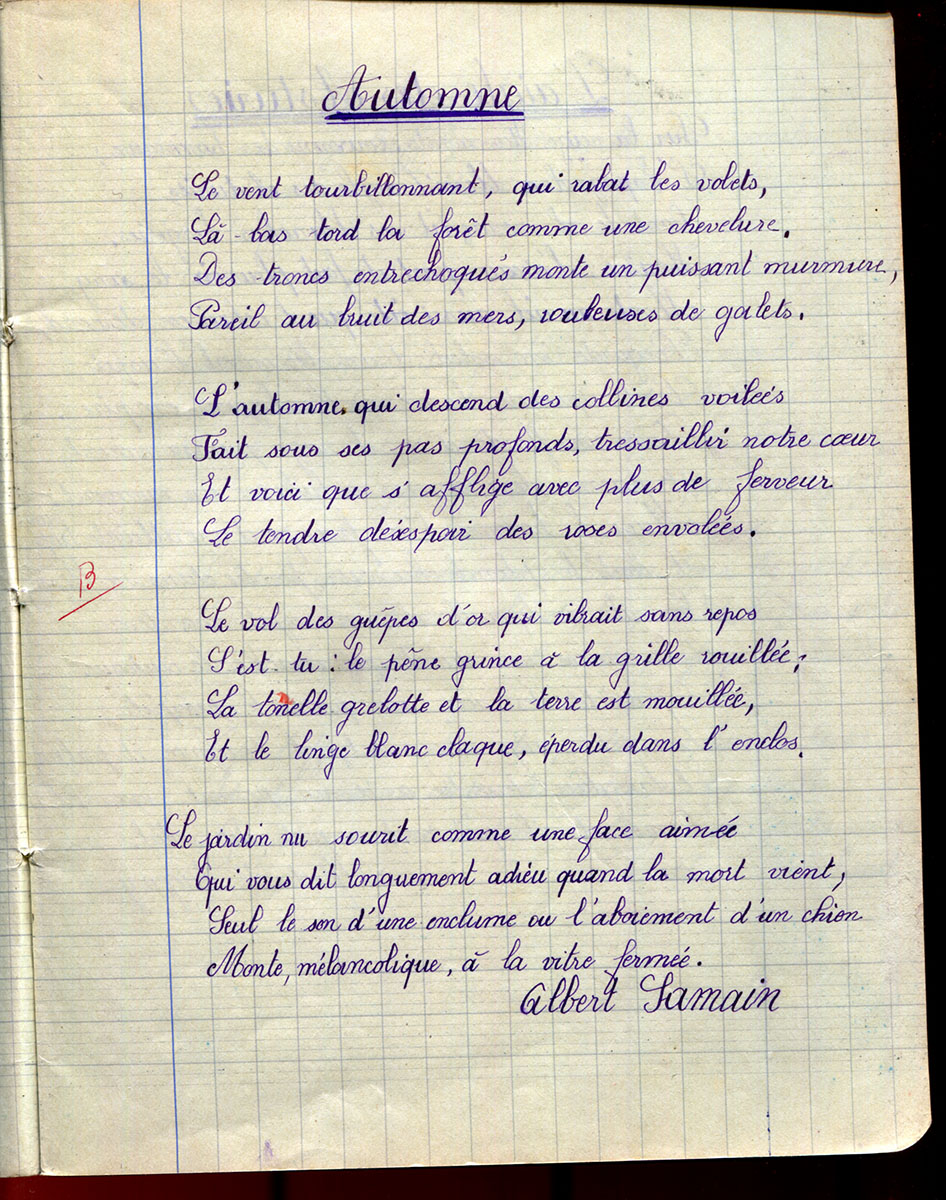 Automne
Le vent tourbillonnant, qui rabat les volets,
Là-bas tord la forêt comme une chevelure.
Des troncs entrechoqués monte un puissant murmure,
Pareil au bruit des mers, rouleuses de galets.
L'automne qui descend des collines voilées
Fait sous ses pas profonds, tressaillir notre cœur
Et voici que s'afflige avec plus de ferveur
Le tendre désespoir des roses envolées.
Le vol des guêpes d'or qui vibrait sans repos
S'est tu : le pêne grince à la grille rouillée ;
La tonelle grelotte et la terre est mouillée,
Et le linge blanc claque, éperdu dans l'enclos.
B
Le jardin nu sourit comme une face aimée
Qui vous dit longuement adieu quand la mort vient,
Seul le son d'une enclume ou l'aboiement d'un chien
Monte, mélancolique, à la vitre fermée.
Albert Samain